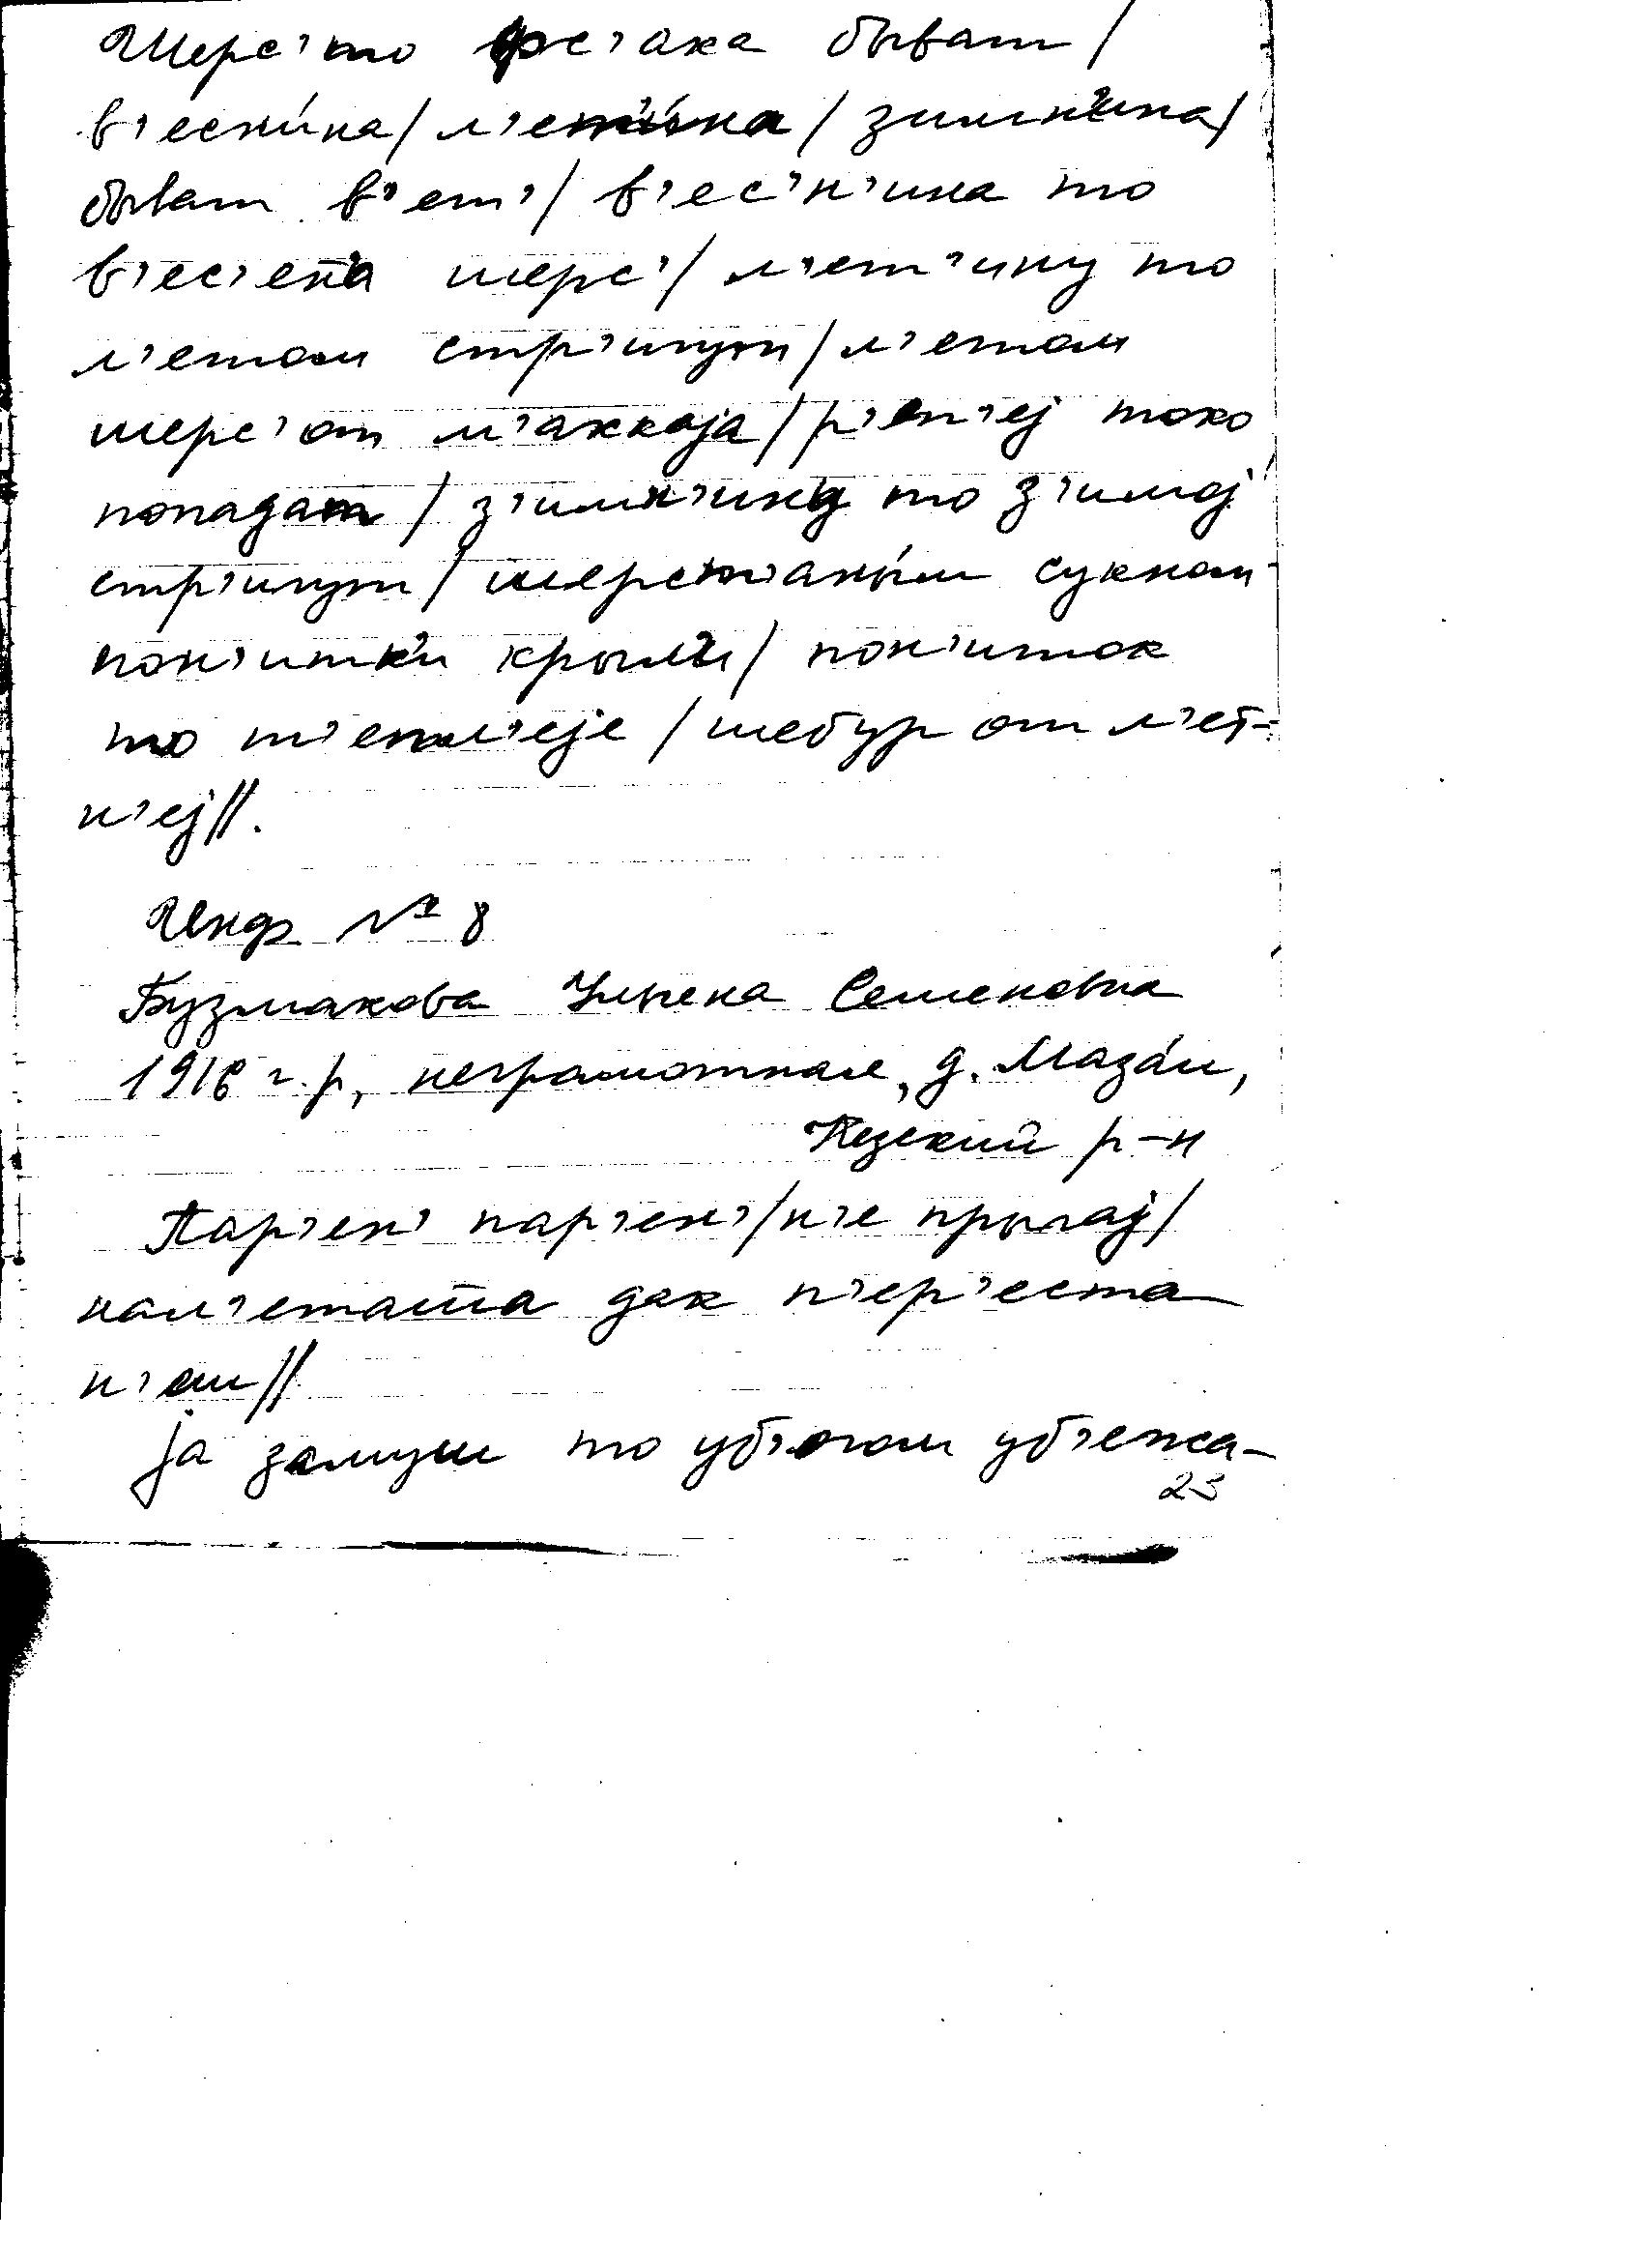 Шерс'то фс'ака быват /
в'есни́на / л'ет'и́на / зимн'ина /
бывт в'ет' / в'ес'н'ина то
в'ес'ен'а шерс' / л'ет'ину то
л'етом стр'игут / л'етом
шерс' от м'аккаjа / р'еп'еj токо
попадат / з'имн'ину то з'имоj
стр'игут / шерст'аны́м сукном
пон'итк'и крыл'и / пон'иток
то т'епл'еjе / шебур от л'ет-
н'еj //.
Инф № 8
Бузмакова Ульяна Семеновна
1916 г.р., неграмотная, д. Маза́и,
Кезский р-н
Пар'ен' пар'ен' / н'е прыгаj /
нал'еташ дак п'ер'еста
н'ош //
Jа замуш то уб'огом уб'ежа-
23